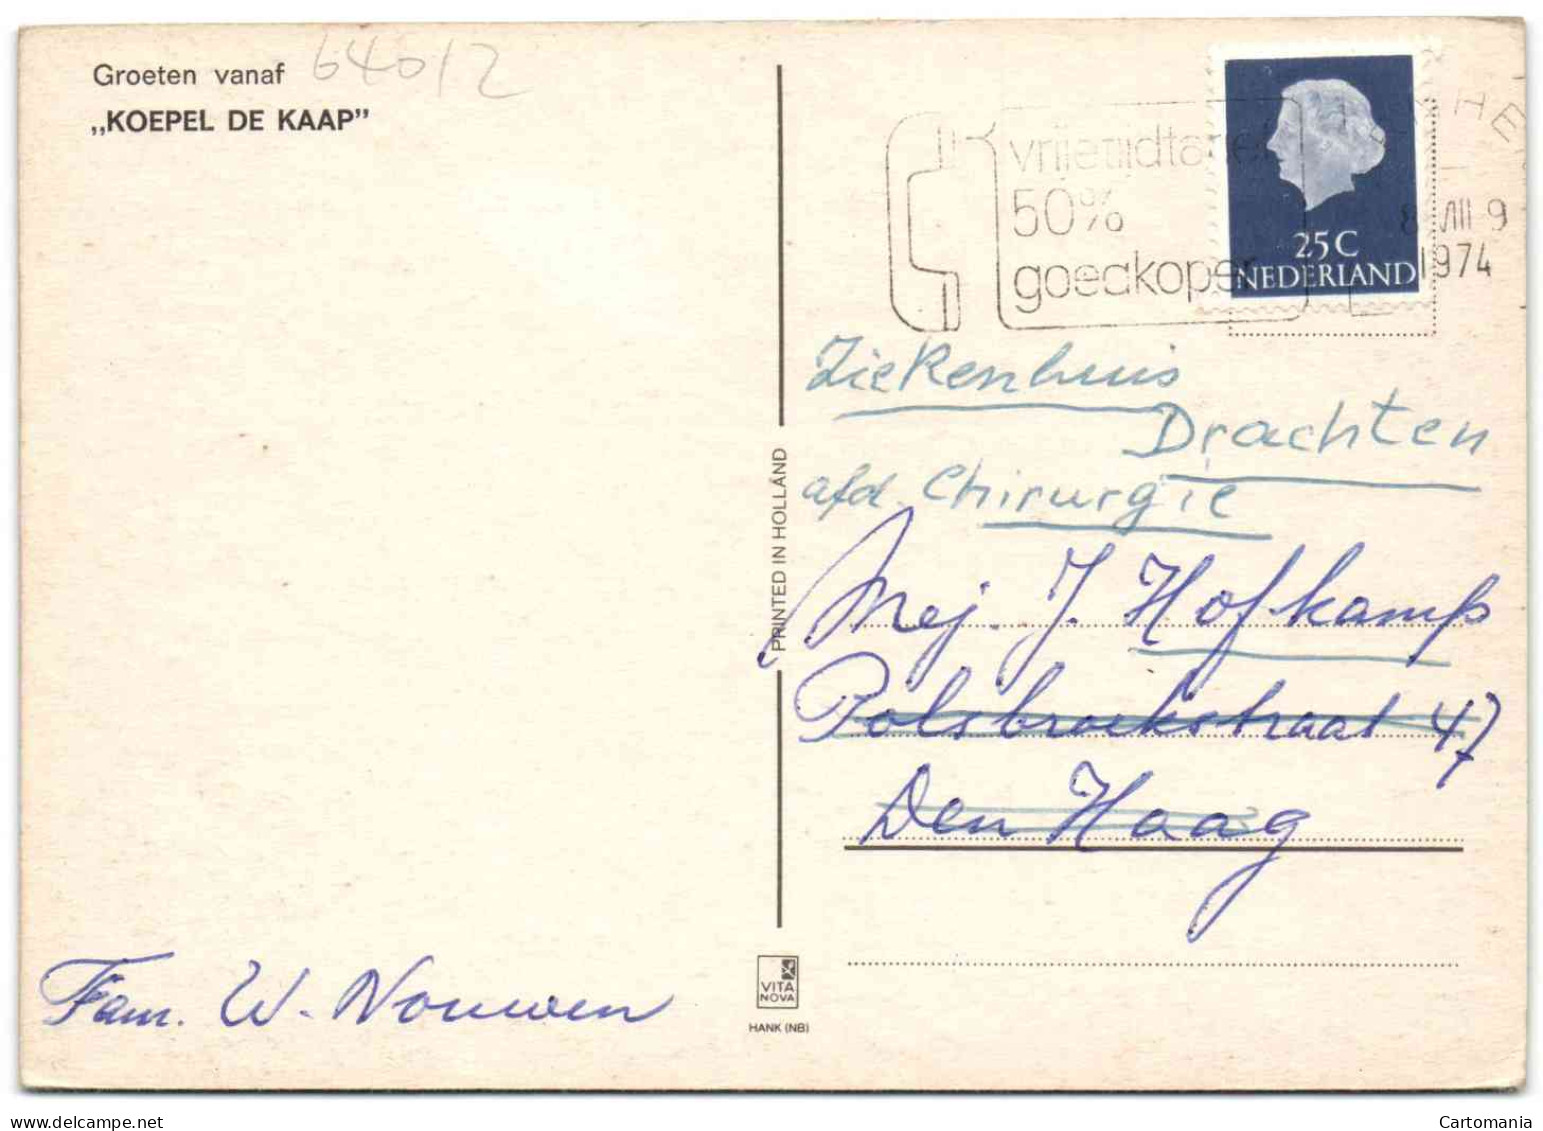 Groeten vanaf
„KOEPEL DE KAAP”
64012
vrijetijdtarief
50%
goedkoper
8 VIII 9
1974
25 C
NEDERLAND
Ziekenhuis
Drachten
afd. Chirurgie
Mej. J. Hofkamp
Polsbroekstraat 47
Den Haag
PRINTED IN HOLLAND
Fam. W. Nouwen
VITA
NOVA
HANK (NB)
delcampe.net
Cartomania